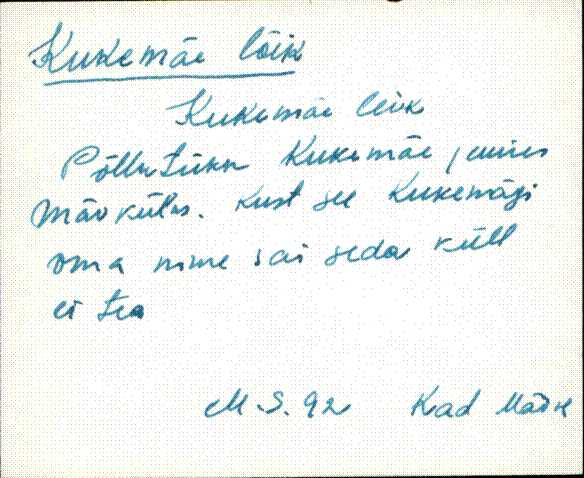 Kukemäe lõik
Kukemäe leik
Põllutükk Kukemäe juures
Mäo külas. Kust see Kukemägi
oma nime sai seda küll
ei tea
M.S. 92 Kad Mäok